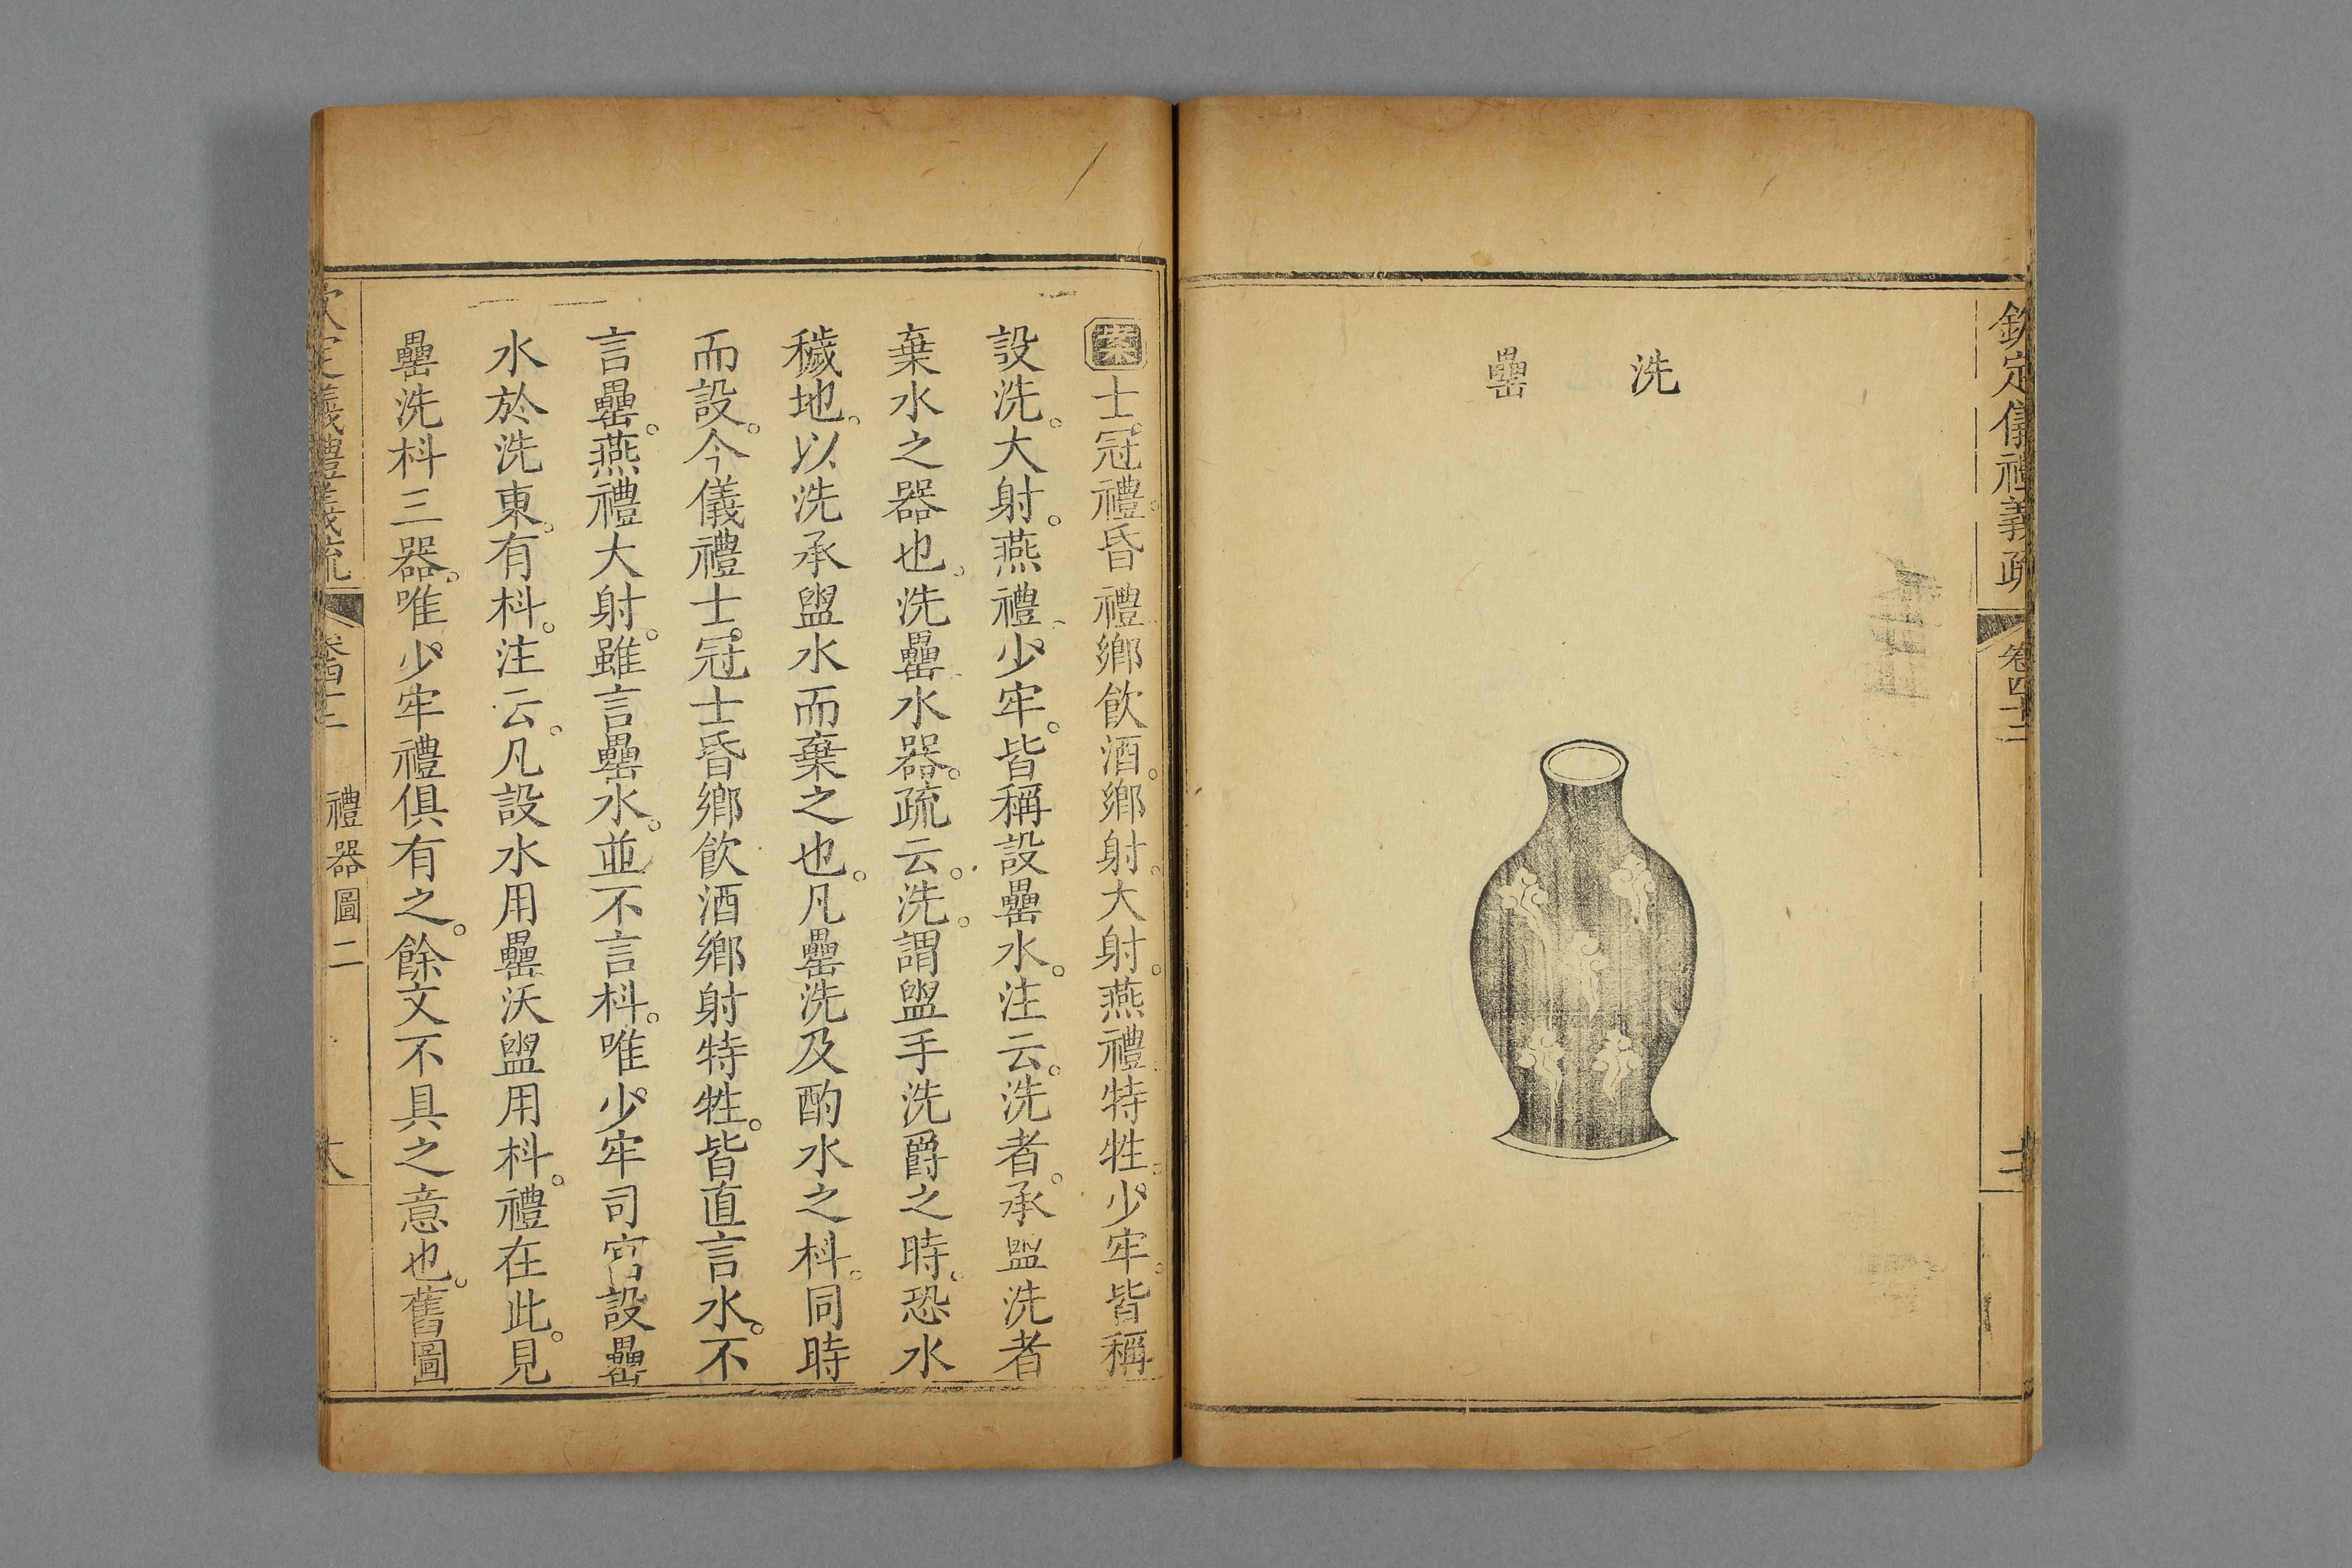 欽定儀禮義疏 卷四十二
洗
罍
案士冠禮。昏禮鄉飲酒。鄉射。大射。燕禮特牲。少牢。皆稱
設洗。大射。燕禮少牢。皆稱設罍水。注云。洗者。承盥洗者
棄水之器也。洗罍水器。疏云。洗。謂盥手洗爵之時。恐水
穢地。以洗承盥水而棄之也。凡罍洗及酌水之枓。同時
而設。今儀禮士冠士昏鄉飲酒鄉射特牲。皆直言水。不
言罍。燕禮大射。雖言罍水。並不言枓。唯少牢司宮設罍
水於洗東。有枓。注云。凡設水用罍沃盥用枓。禮在此。見
罍洗枓三器。唯少牢禮俱有之。餘文不具之意也。舊圖
儀禮義疏 卷四十二 禮器圖二